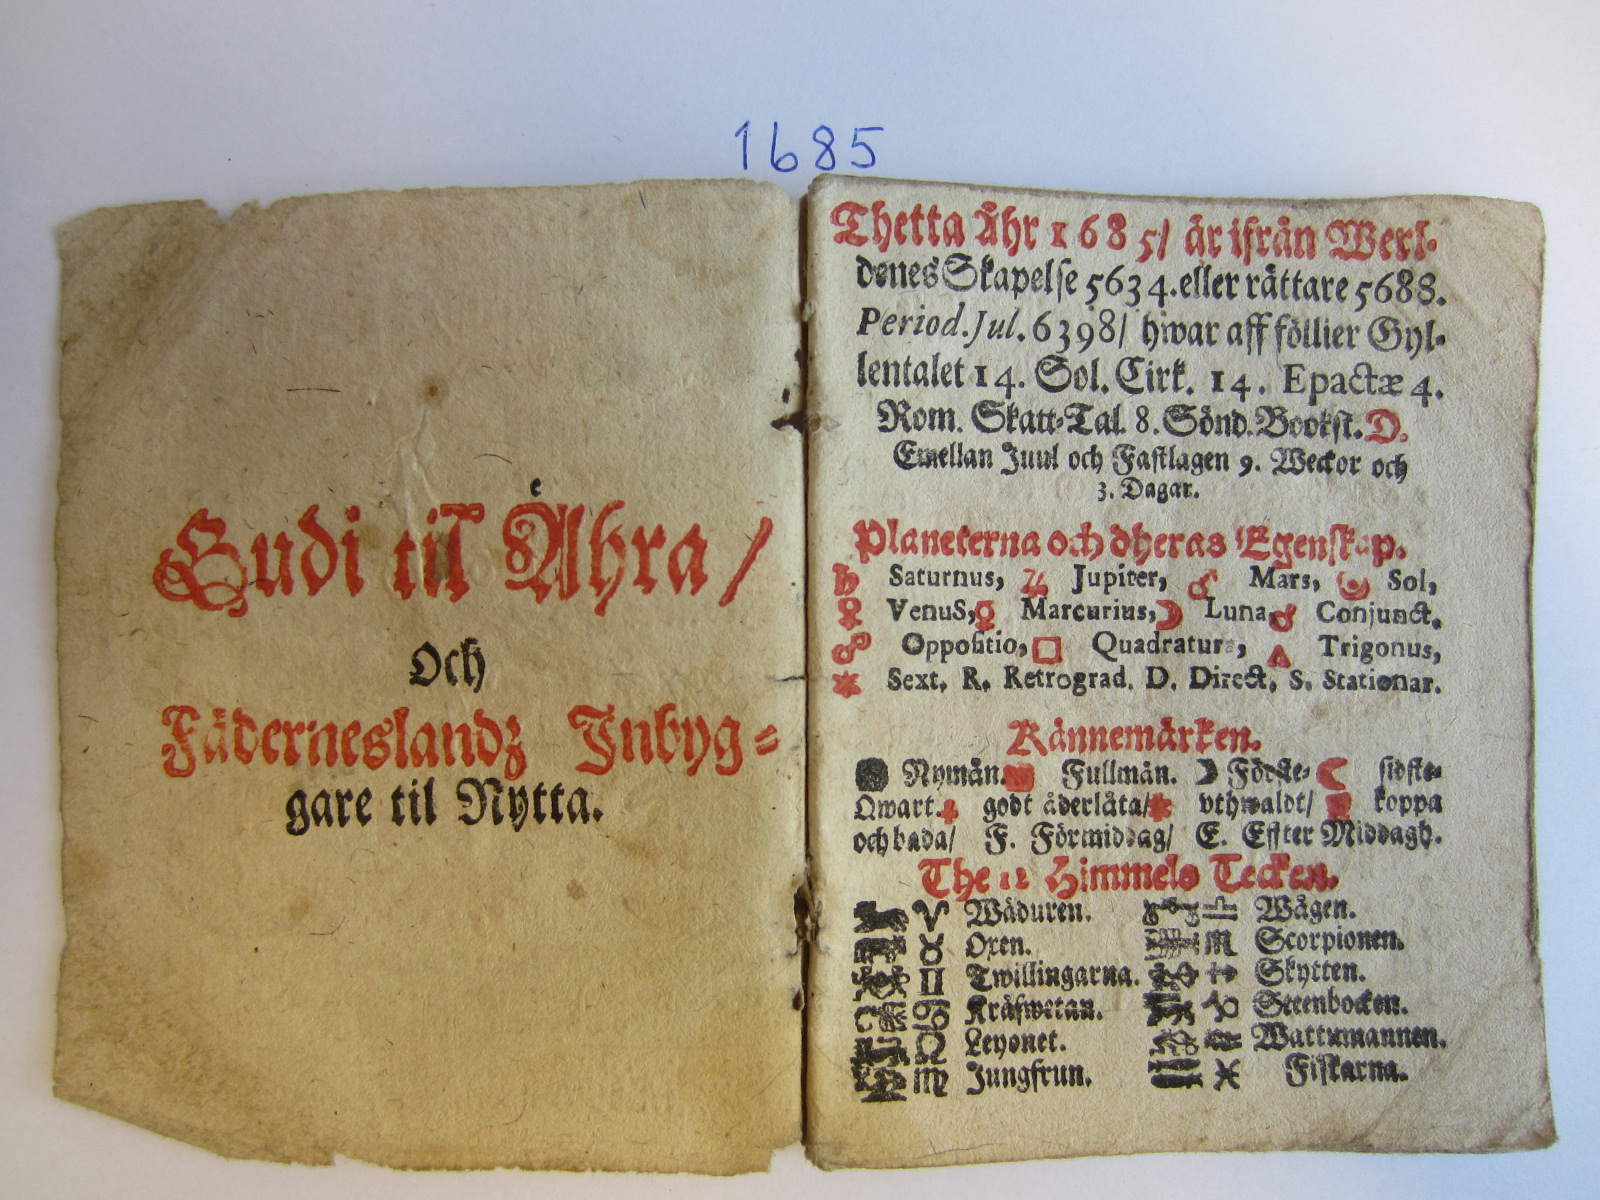 1685
Gudi til Åhra/
Och
Fäderneslandz Inbyg=
gare til Nytta.
Thetta Åhr 1685/ är ifrån Werl-
denes Skapelse 5634. eller rättare 5688.
Period. Jul. 6398/ hwar aff föllier Gyl-
lentalet 14. Sol. Cirk. 14. Epactæ 4.
Rom. Skatt-Tal 8. Sönd. Bookst. D.
Emellan Juul och Fastlagen 9. Weckor och
3. Dagar.
Planeterna och dheras Egenskap.
♄ Saturnus, ♃ Jupiter, ♂ Mars, ☉ Sol,
♀ VenuS, ☿ Marcurius, ☽ Luna, ☌ Conjunct.
☍ Oppositio, □ Quadratura, △ Trigonus,
⚹ Sext. R. Retrograd. D. Direct, S. Stationar.
Kännemärken.
Nymån. Fullmån. ☽ Förste- ☾ sidste-
Qwart. godt åderlåta/ vthwaldt/ koppa
och bada/ F. Förmiddag/ E. Effter Middagh.
The 12 Himmels Tecken.
♈ Wäduren. ♎ Wågen.
♉ Oxen. ♏ Scorpionen.
♊ Twillingarna. ♐ Skytten.
♋ Kräfwetan. ♑ Steenbocken.
♌ Leyonet. ♒ Wattumannen.
♍ Jungfrun. ♓ Fiskarna.